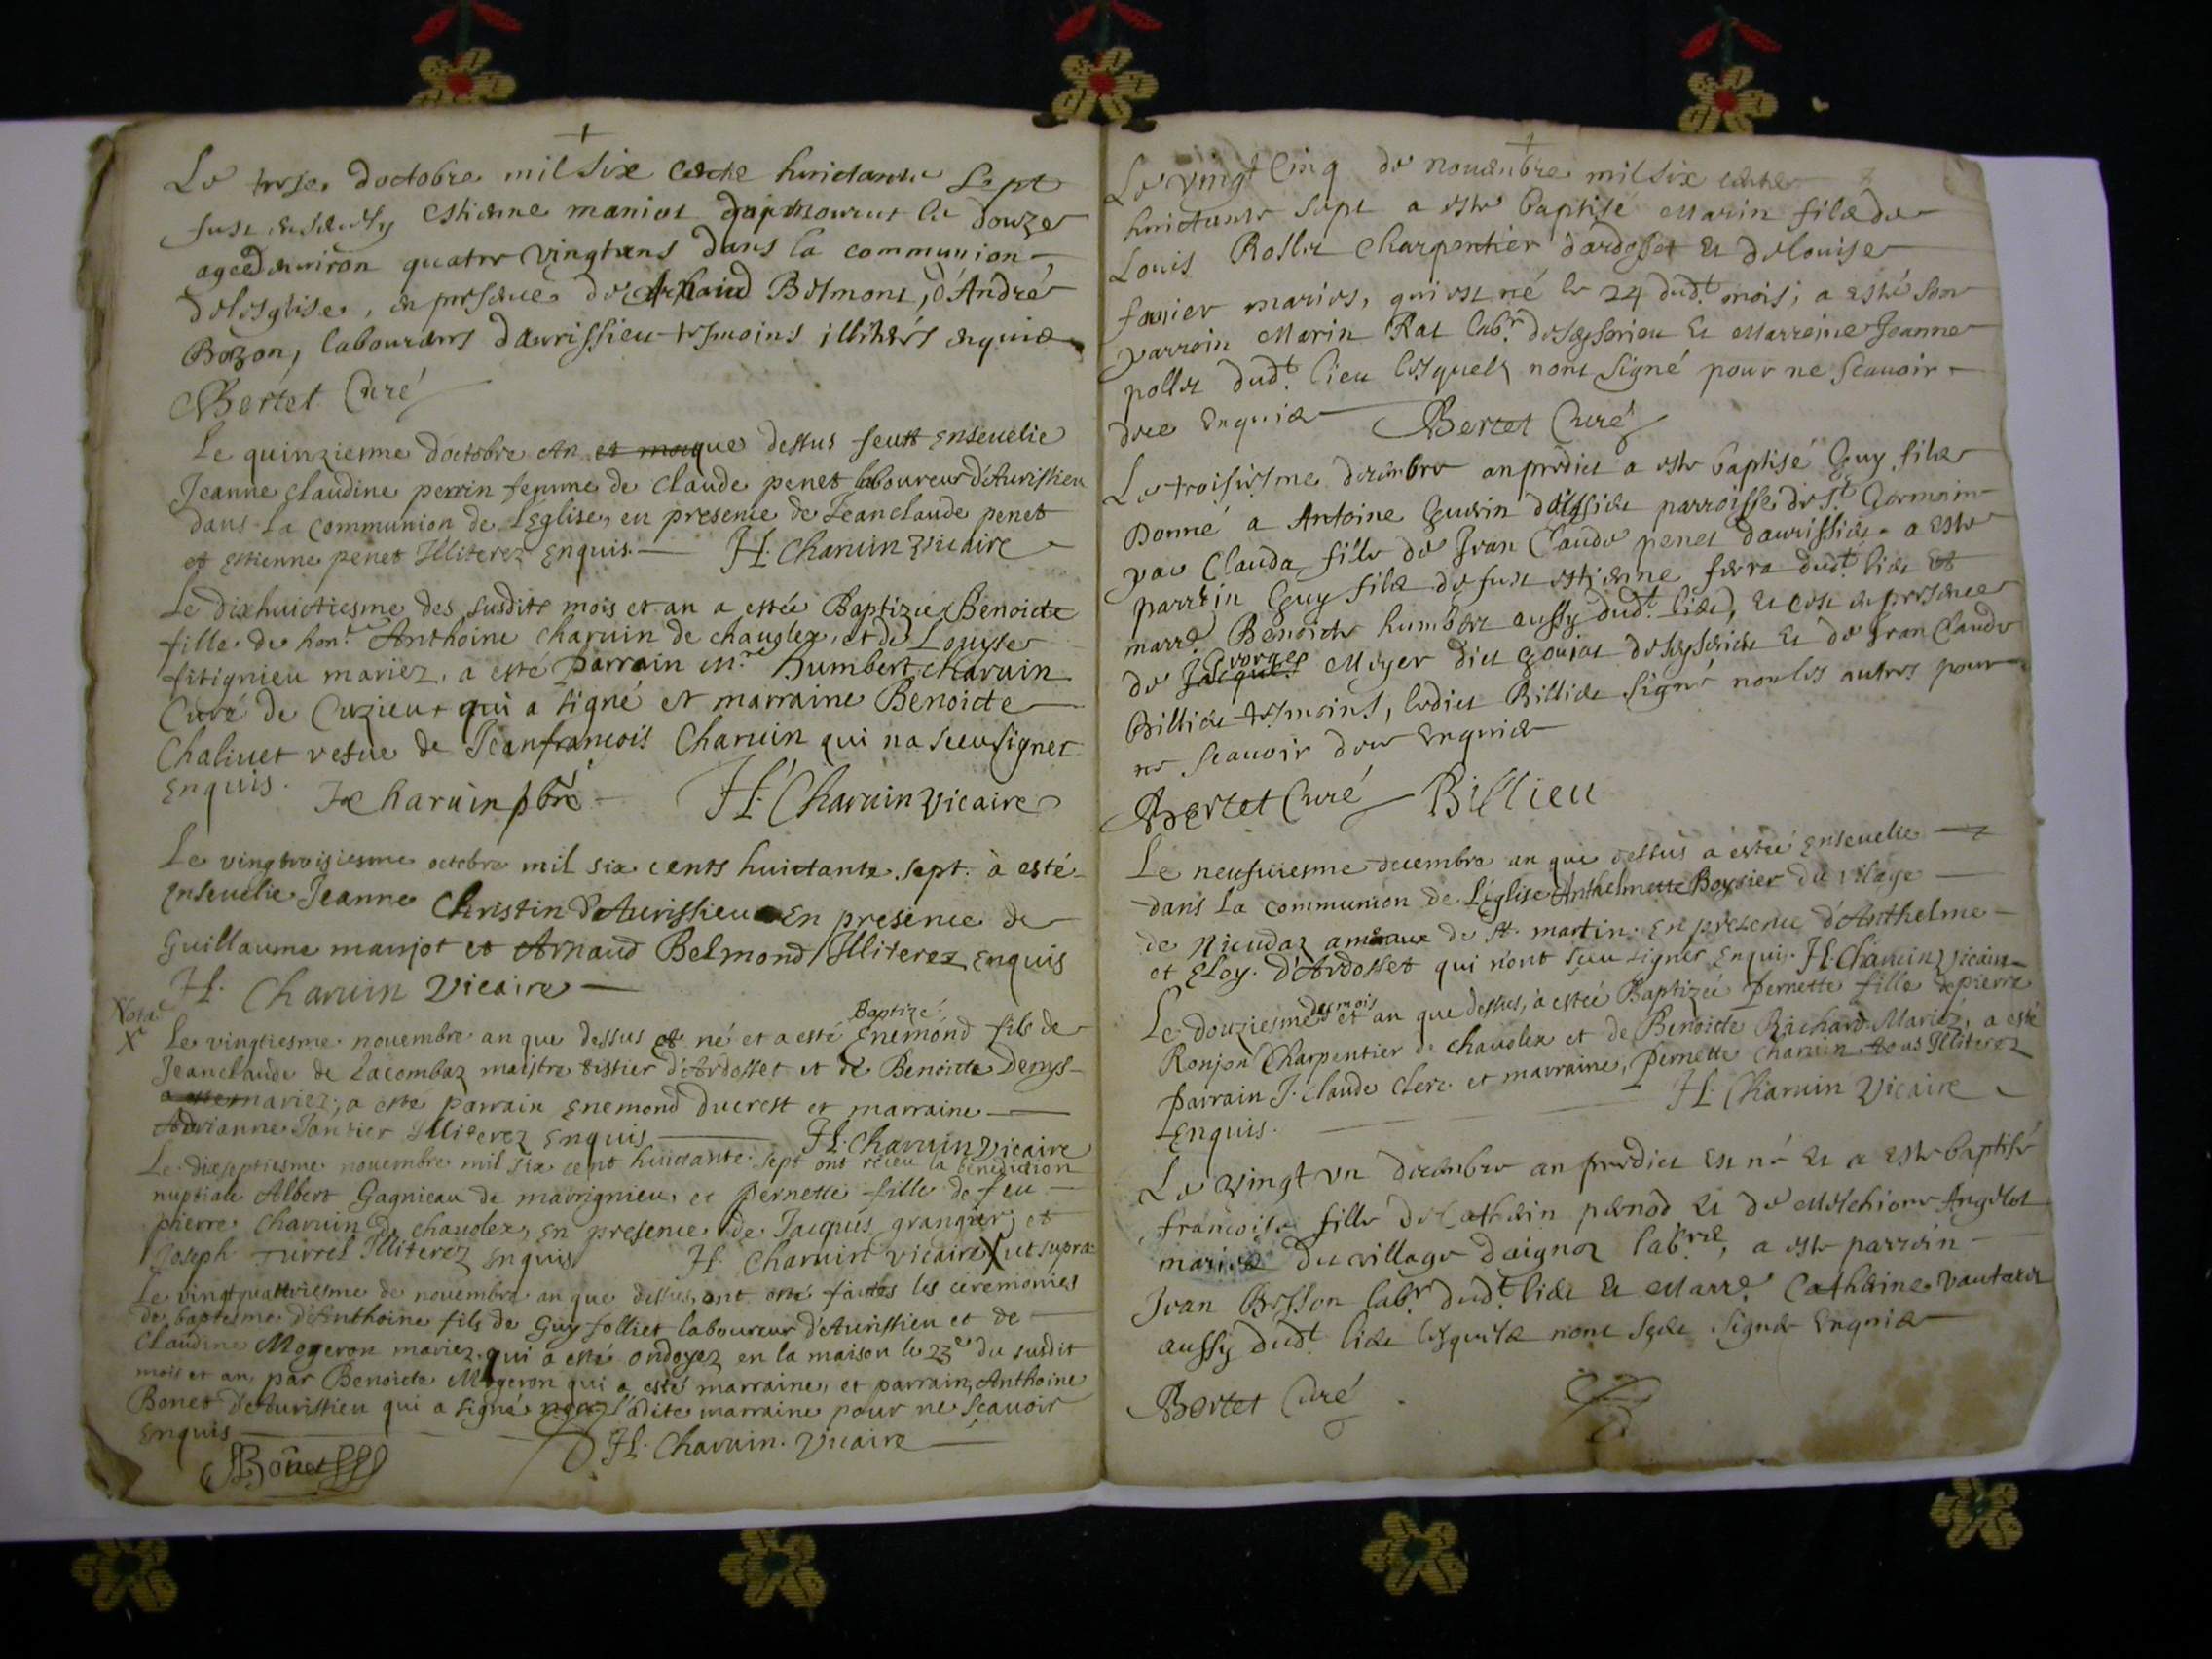 Le doctobre mil six huictante sept
fust Estienne maniot mourut le douze
aagé denviron quatre vingt ans dans la communion
de lesglise, en presence de Belmont, d'André
Bozon, laboureurs daurissieu tesmoins illiterés enquis
Bertet Curé
Le quinziesme doctobre an que dessus feust Ensevelie
Jeanne claudine perrin femme de claude penet laboureur d'Aurissieu
dans la communion de Leglise, en presence de Jean claude penet
et Estienne penet Illiterez Enquis. H. Charvin Vicaire
Le dixhuictiesme des susdits mois et an a estée Baptizée Benoicte
fille de hon. Anthoine charvin de chavolex, et de Louyse
fitignieu mariez, a esté parrain mre. humbert charvin
Curé de Cuzieu qui a signé et marraine Benoicte
Chalivet vefve de Jeanfrancois Charvin qui na sceu signer
Enquis. H charvin pbre H. Charvin Vicaire
Le vingtroisiesme octobre mil six cents huictante sept. à esté
Ensevelie Jeanne Christin d'Aurissieu En presence de
Guillaume manjot et Arnaud Belmond Illiterez Enquis
H. Charvin Vicaire
Nota
X Le vingtiesme novembre an que dessus est né et a esté Baptizé Enemond fils de
Jeanclaude de Lacombaz maistre tissier d'Ardosset et de Benoicte Denys
mariez, a esté parrain Enemond ducrest et marraine
Adrianne Illiterez Enquis H. Charvin Vicaire
Le dixseptiesme novembre mil six cent huictante sept ont receu la benediction
nuptiale Albert Gagnieau de marignieu, et pernette fille de feu
pierre charvin de chavolex, En presence de Jacques grangier, et
Joseph Turrel Illiterez Enquis H. Charvin Vicaire X ut supra
Le vingtquattriesme de novembre an que dessus, ont esté faites les ceremonies
de baptesme d'Anthoine fils de Guy folliet laboureur d'Aurissieu et de
Claudine Mogeron mariez, qui a esté ondoyez en la maison le 23e du susdit
mois et an, par Benoicte Mogeron qui a esté marraine, et parrain, Anthoine
Bonet d'Aurissieu qui a signé non ladite marraine pour ne scavoir
Enquis
Bonet H. Charvin. Vicaire
Le vingt cinq de novembre mil six
huictante sept a esté baptisé Marin filz de
Louis Rollet charpentier dardosset et de louise
mariés, qui est né le 24 dudt. mois; a esté son
parrein Marin Rat labr. et Marreine Jeanne
pollet dudt. lieu lesquelz nont signé pour ne scavoir
enquis Bertet Curé
Le troisiesme decembre an predict a esté baptisé Guy filz
Donné a Antoine Guerin parroisse de St. Germain
par Clauda fille de Jean Claude penet daurissieu. a esté
parrein Guy filz de fust estienne ferra dudt. lieu et
marre. Benoicte humbert aussy dudt. lieu, et ce en presence
de Georges Meyer dict goujat et de Jean Claude
Billieu tesmoins, ledict Billieu signé non les autres pour
ne scavoir enquis
Bertet Curé Billieu
Le neufviesme decembre an que dessus a estée Ensevelie
dans la communion de Léglise Anthelmette Boysier du vilage
de Nieudaz de St. martin. En presence d'Anthelme
et Eloy. d'Ardosset qui n'ont sceu signer Enquis. H. Charvin vicaire
Le douziesme des mois et an que dessus, a estée Baptizée pernette fille de pierre
Ronjon Charpentier de chavolex et de Benoicte Richard Mariez, a esté
parrain J. claude clerc. et marraine, pernette charvin tous Illiterez
Enquis. H. Charvin Vicaire
Le vingt un decembre an predict est né et a esté baptisé
francoise fille de Cathein penod et de Angelot
mariés du village daignoz labrs., a esté parrein
Jean Besson labr. dudt. lieu et Marre. Catheine
aussy dudt. lieu lesquelz nont sceu signer enquis
Bertet Curé